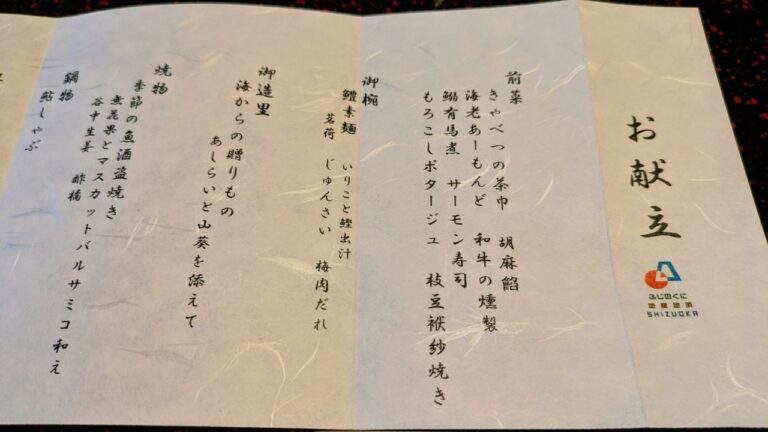 お献立
ふじのくに
地産地消
SHIZUOKA
前菜
きゃべつの茶巾 胡麻餡
海老あーもんど 和牛の燻製
鰯有馬煮 サーモン寿司
もろこしポタージュ 枝豆袱紗焼き
御椀
鱧素麺 いりこと鰹出汁
茗荷 じゅんさい 梅肉だれ
御造里
海からの贈りもの
あしらいと山葵を添えて
焼物
季節の魚酒盗焼き
無花果とマスカットバルサミコ和え
谷中生姜 酢橘
鍋物
鮎しゃぶ